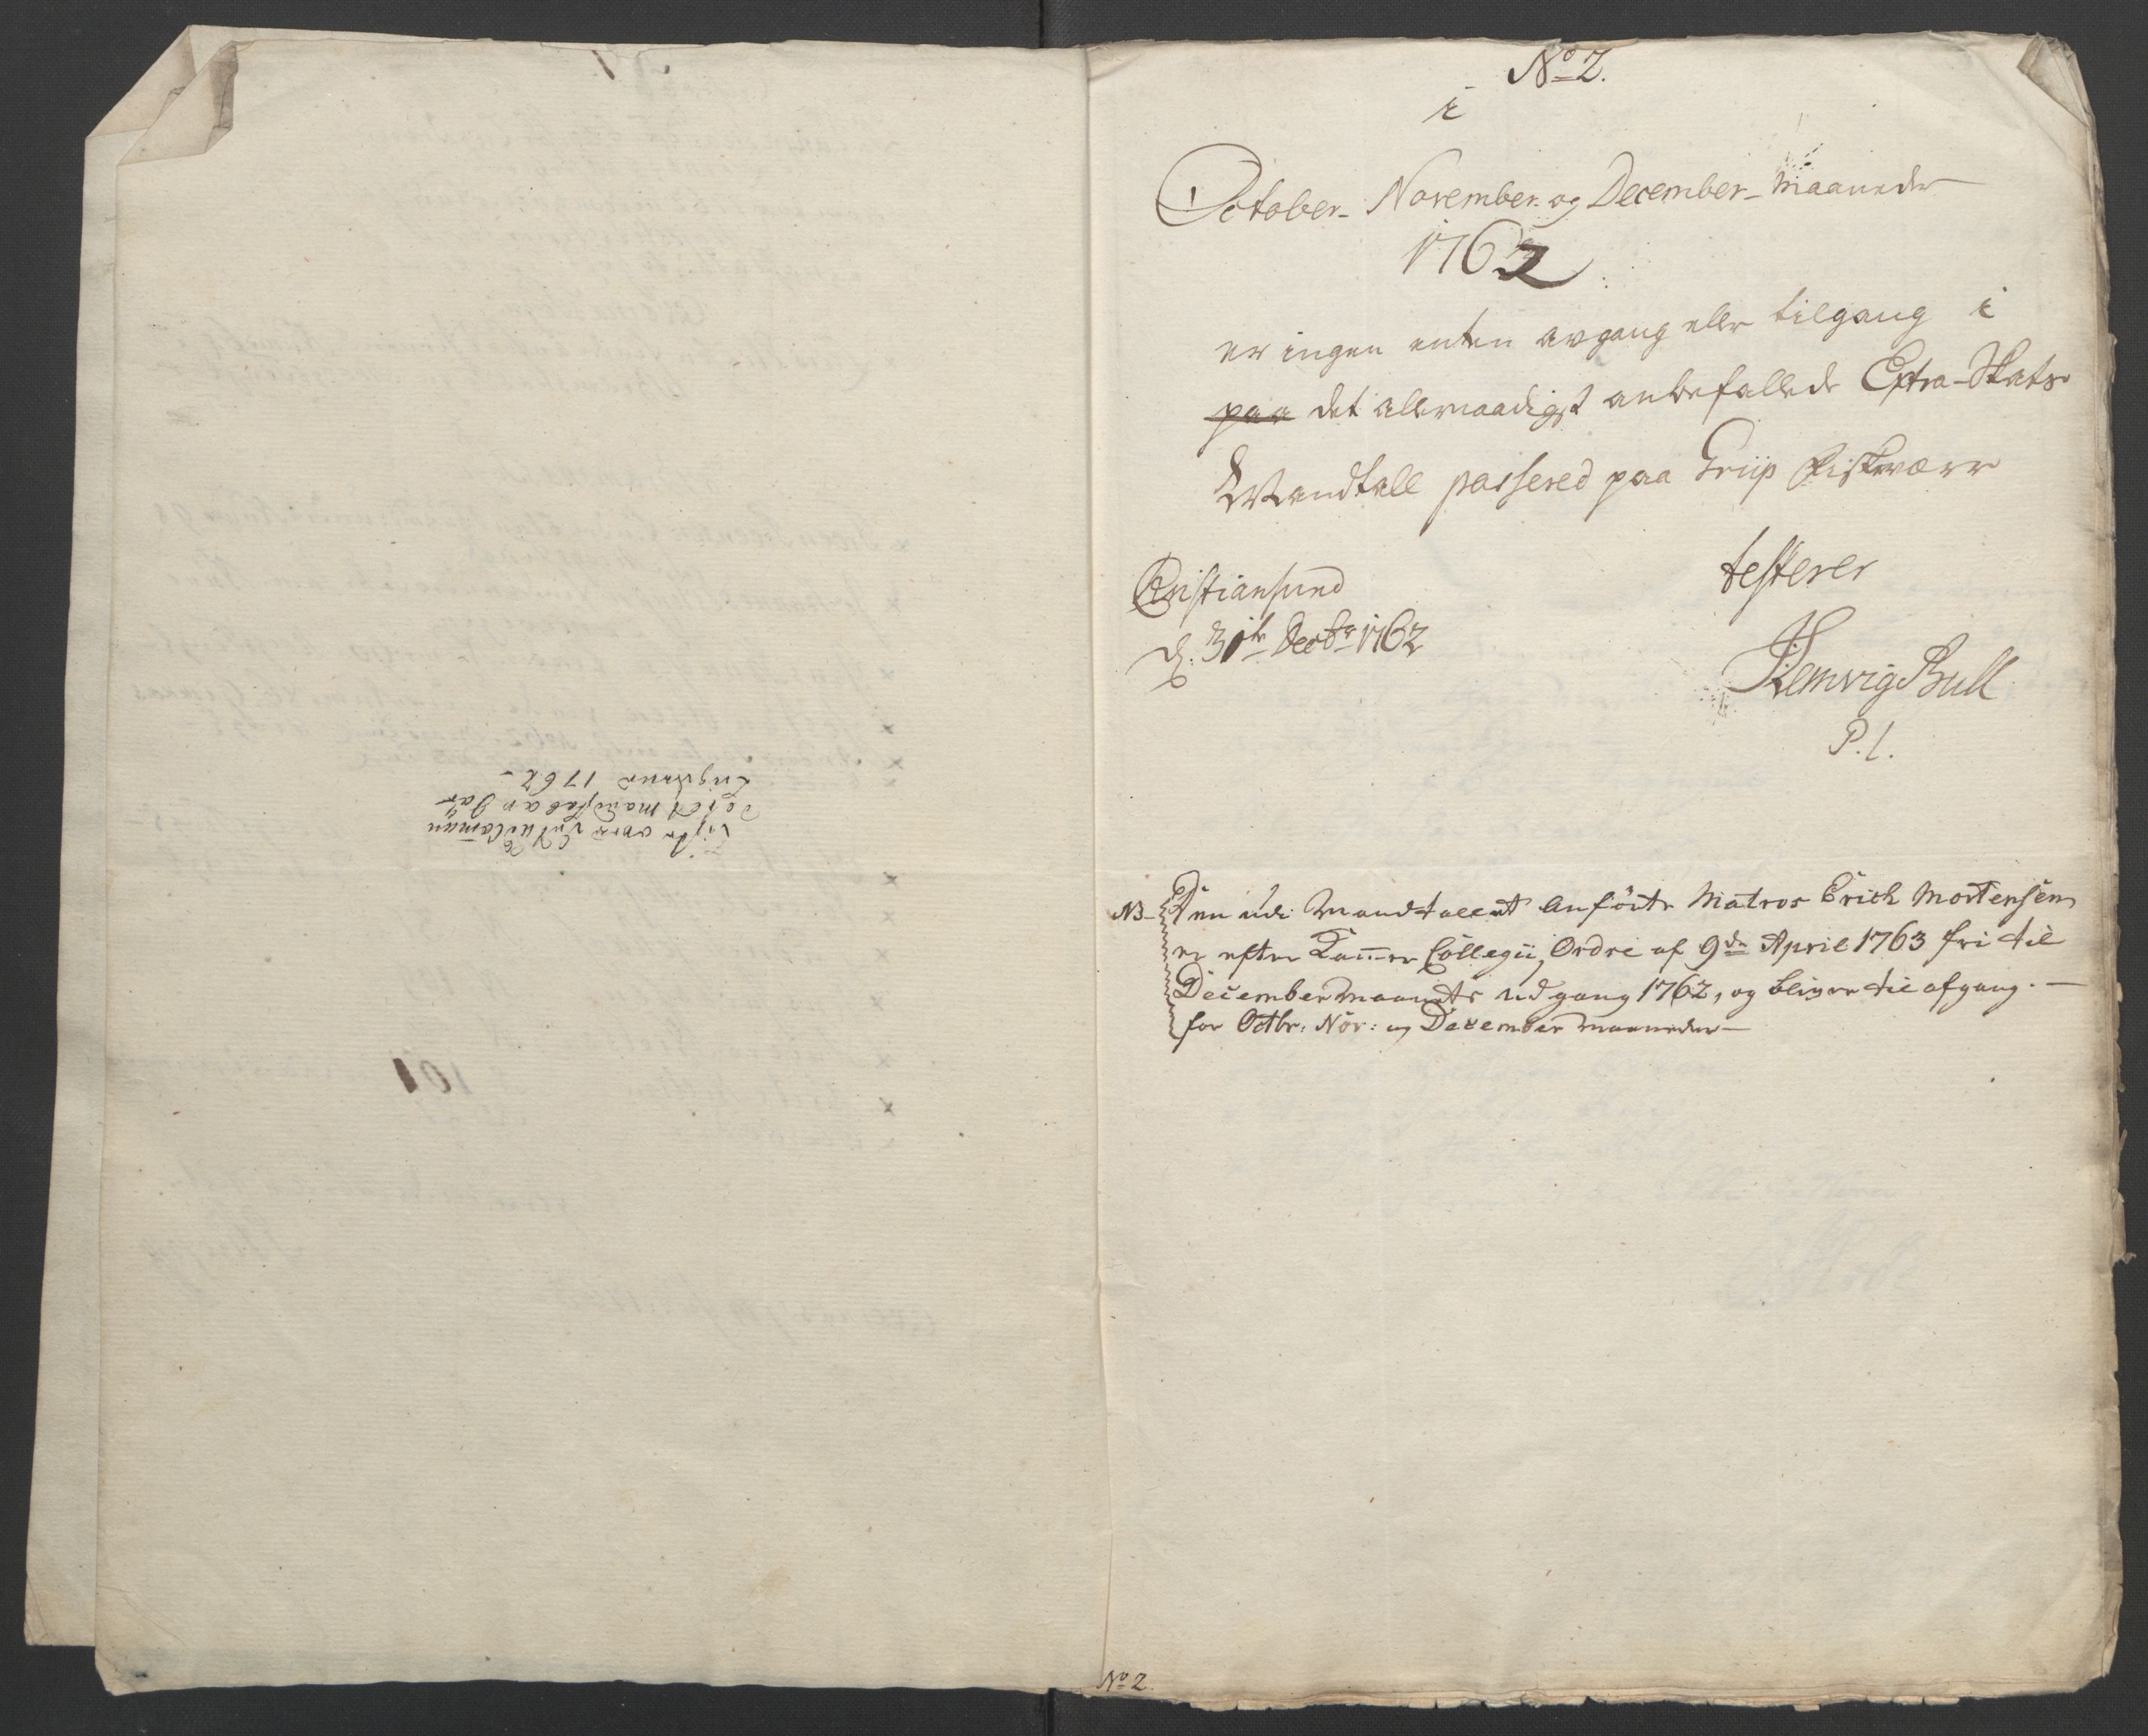 No 2.
i
October- November- og December- Maaneder
1762
er ingen enten avgang eller tilgang i
paa det allernaadigst anbefallede Extra-Skatts
Mandtall passered paa Griip Fiskevær
testerer
Christiansund
d: 31te Decbr 1762
Hemvig Bull
P. l.
NB. Den udi Mandtallet Anförte Matros Erich Mortensen
er efter Kammer Collegii Ordre af 9de April 1763 fri til
December Maanets udgang 1762, og bliver til afgang.
for Octbr: Nov: og December Maaneder
No 2.
Liste over
1762
101